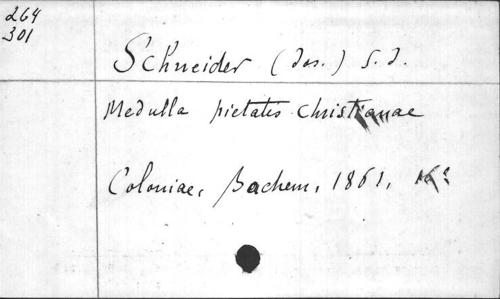 264
301
Schneider (Jos.) S. J.
Medulla pietatis Christianae
Coloniae, Bachem, 1861, 16º